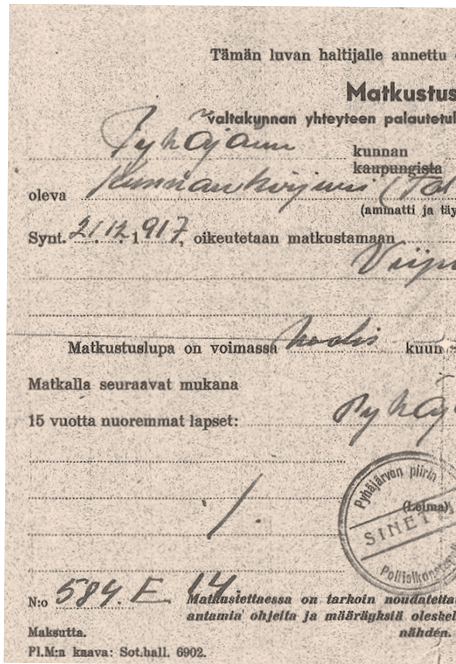 Tämän luvan haltijalle annettu
Matkustus
valtakunnan yhteyteen palautetul
Pyhäjärven kunnan
kaupungista
oleva Kunnankirjuri
(ammatti ja täy
Synt. 21.12.1917, oikeutetaan matkustamaan
Viipu
Matkustuslupa on voimassa kuun
Matkalla seuraavat mukana
Pyhäj
15 vuotta nuoremmat lapset:
Pyhäjärven piirin
(Loima)
SINET
/.
N:o 584. E 14
Matkustettaessa on tarkoin noudatetta
antamia ohjeita ja määräyksiä oleskel
Maksutta. nähden.
Pl.M:n kaava: Sot.hall. 6902.